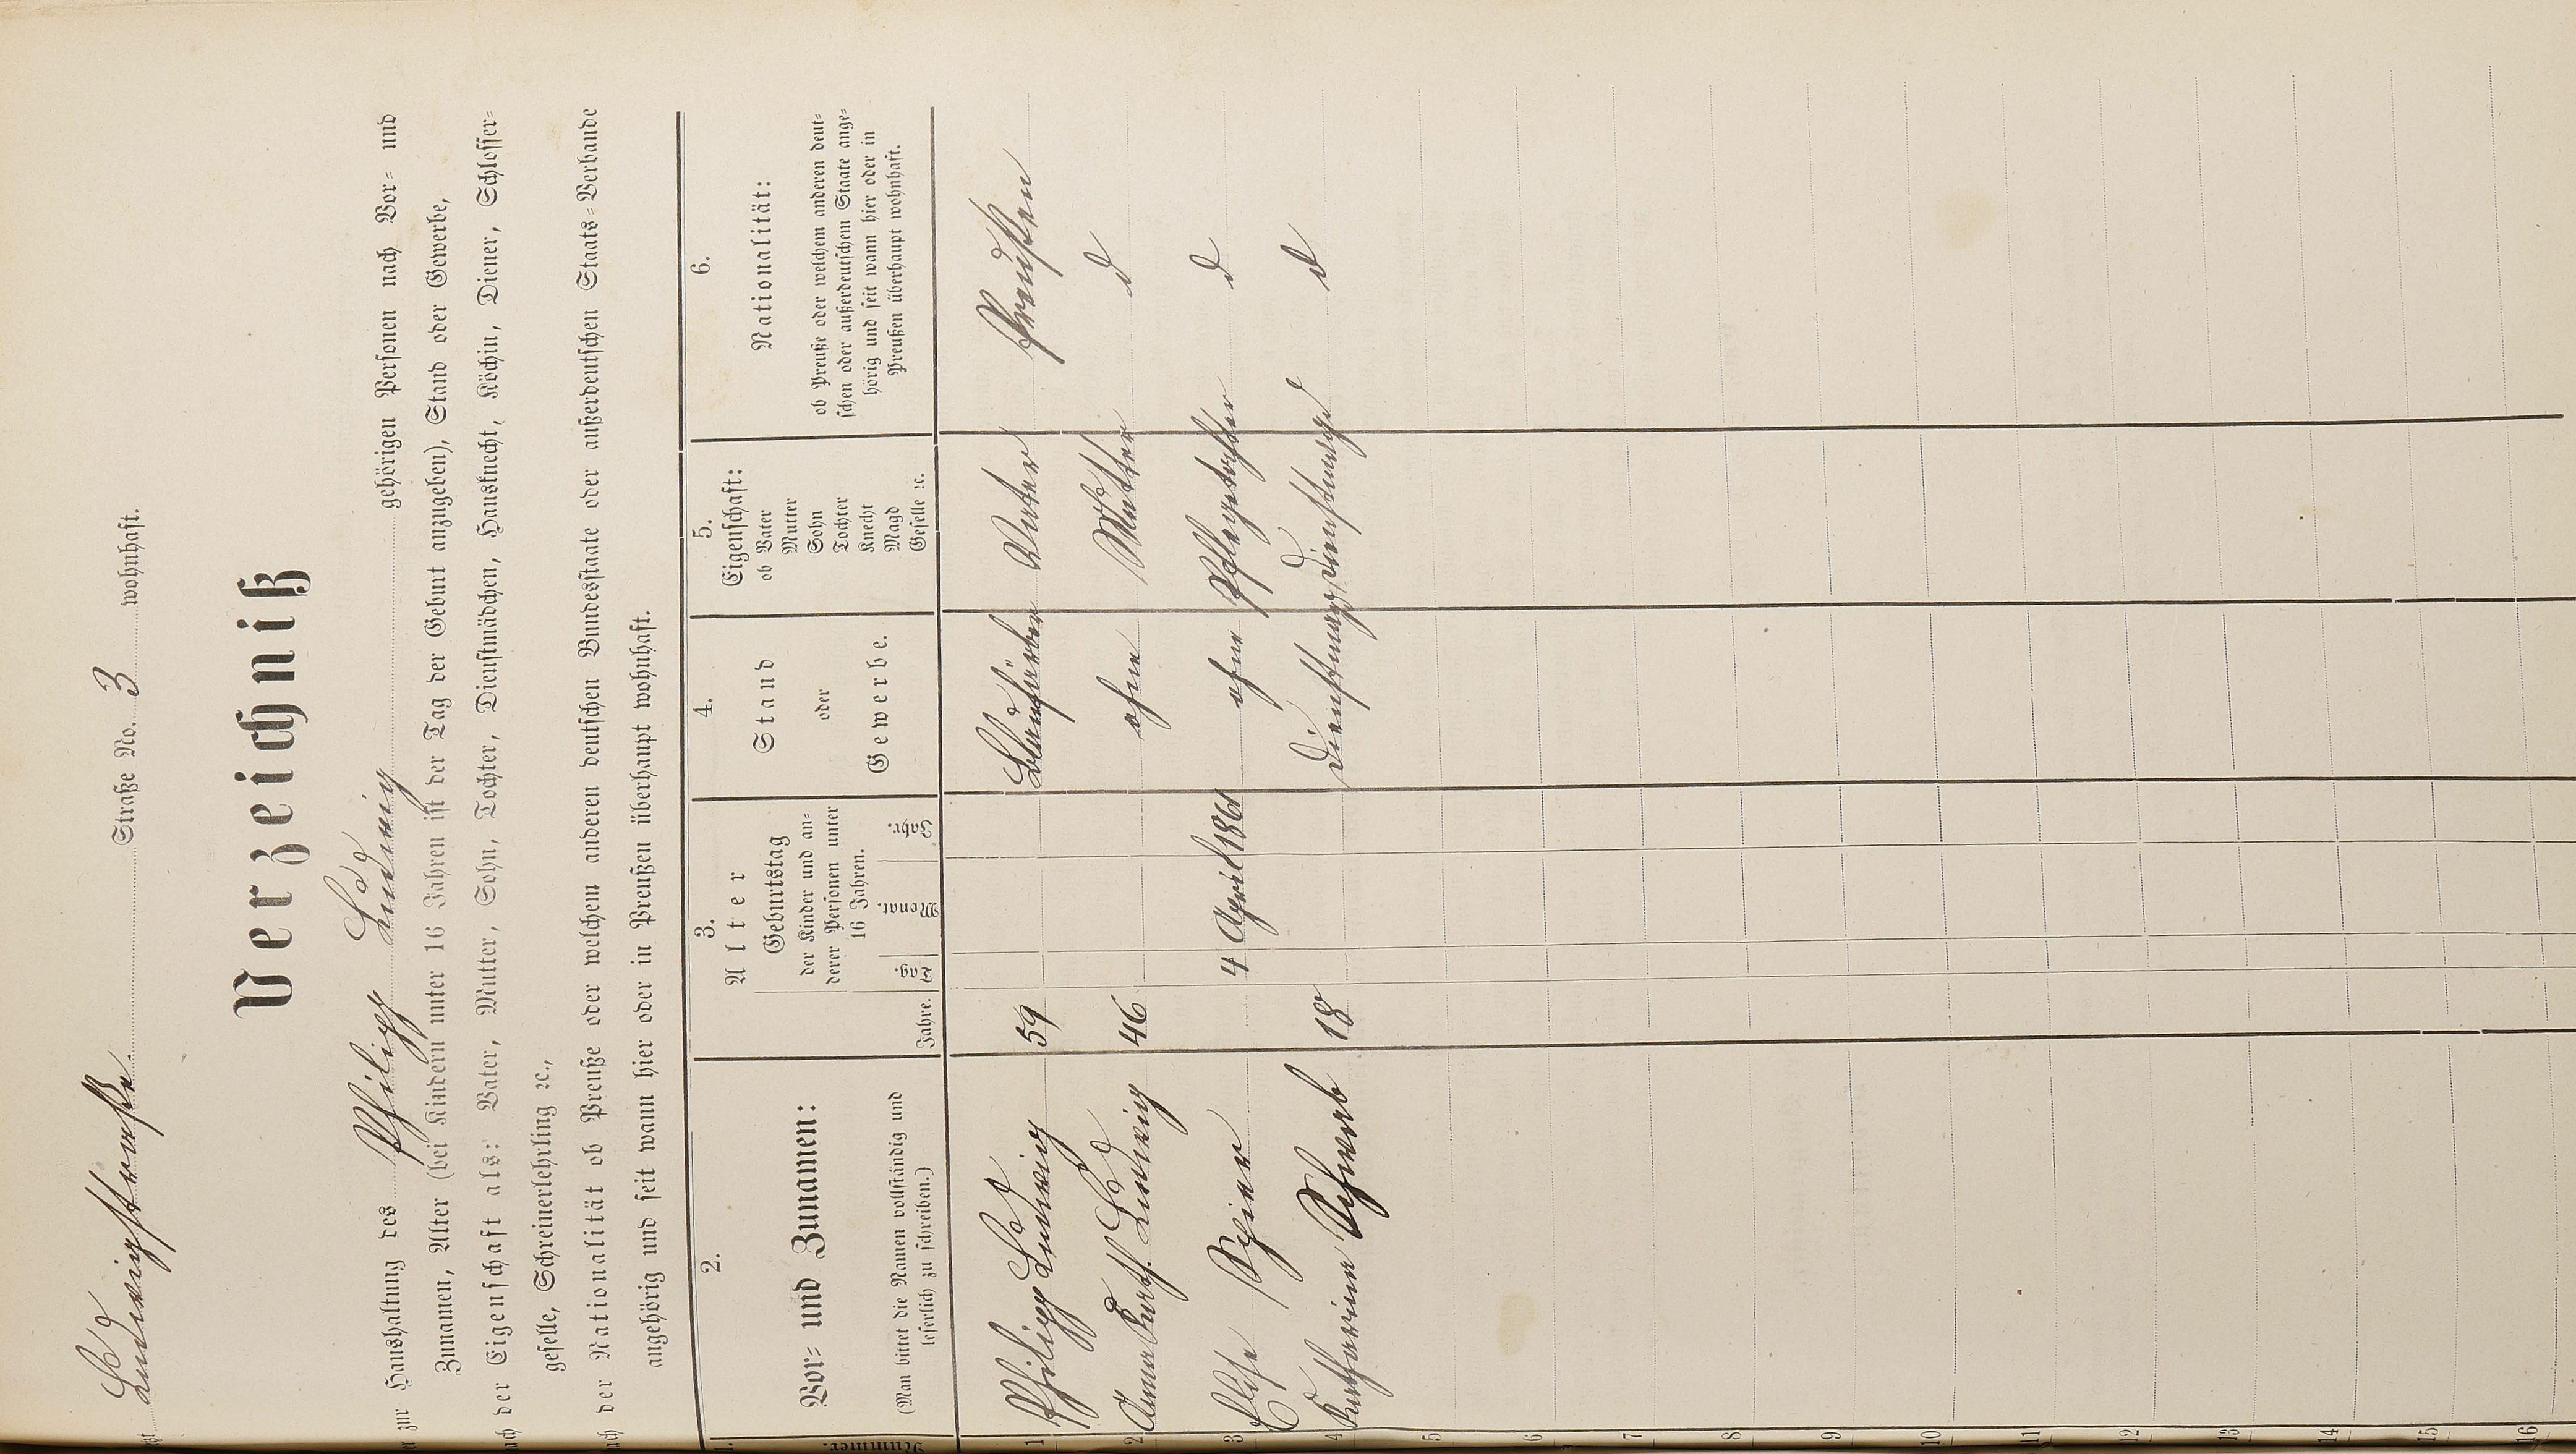 Ludwigstraße Straße No. 3 wohnhaft.
Verzeichniß
zur Haushaltung des Philipp Ludwig gehörigen Personen nach Vor- und
Zunamen, Alter (bei Kindern unter 16 Jahren ist der Tag der Geburt anzugeben), Stand oder Gewerbe,
der Eigenschaft als: Vater, Mutter, Sohn, Tochter, Dienstmädchen, Hausknecht, Köchin, Diener, Schlosser-
geselle, Schreinerlehrling ꝛc.,
der Nationalität ob Preuße oder welchem anderen deutschen Bundesstaate oder außerdeutschen Staats-Verbande
angehörig und seit wann hier oder in Preußen überhaupt wohnhaft.
Nummer.
2. Vor- und Zunamen:
(Man bittet die Namen vollständig und
leserlich zu schreiben.)
3.
Alter
Jahre.
Geburtstag
der Kinder und an-
derer Personen unter
16 Jahren.
Tag. Monat. Jahr.
4.
Stand
oder
Gewerbe.
5.
Eigenschaft:
ob Vater
Mutter
Sohn
Tochter
Knecht
Magd
Geselle ꝛc.
6.
Nationalität:
ob Preuße oder welchem anderen deut-
schen oder außerdeutschem Staate ange-
hörig und seit wann hier oder in
Preußen überhaupt wohnhaft.
1 Philipp Ludwig 59 Blaufärber Vater Preußen
2 Anna Kath. Ludwig 46 ohne Mutter d
3 Elise Speier 4 April 1861 ohne Pflegetochter d
4 Katharina Schwab 18 Dienstmagd Dienstmagd d
5
6
7
8
9
10
11
12
13
14
15
16